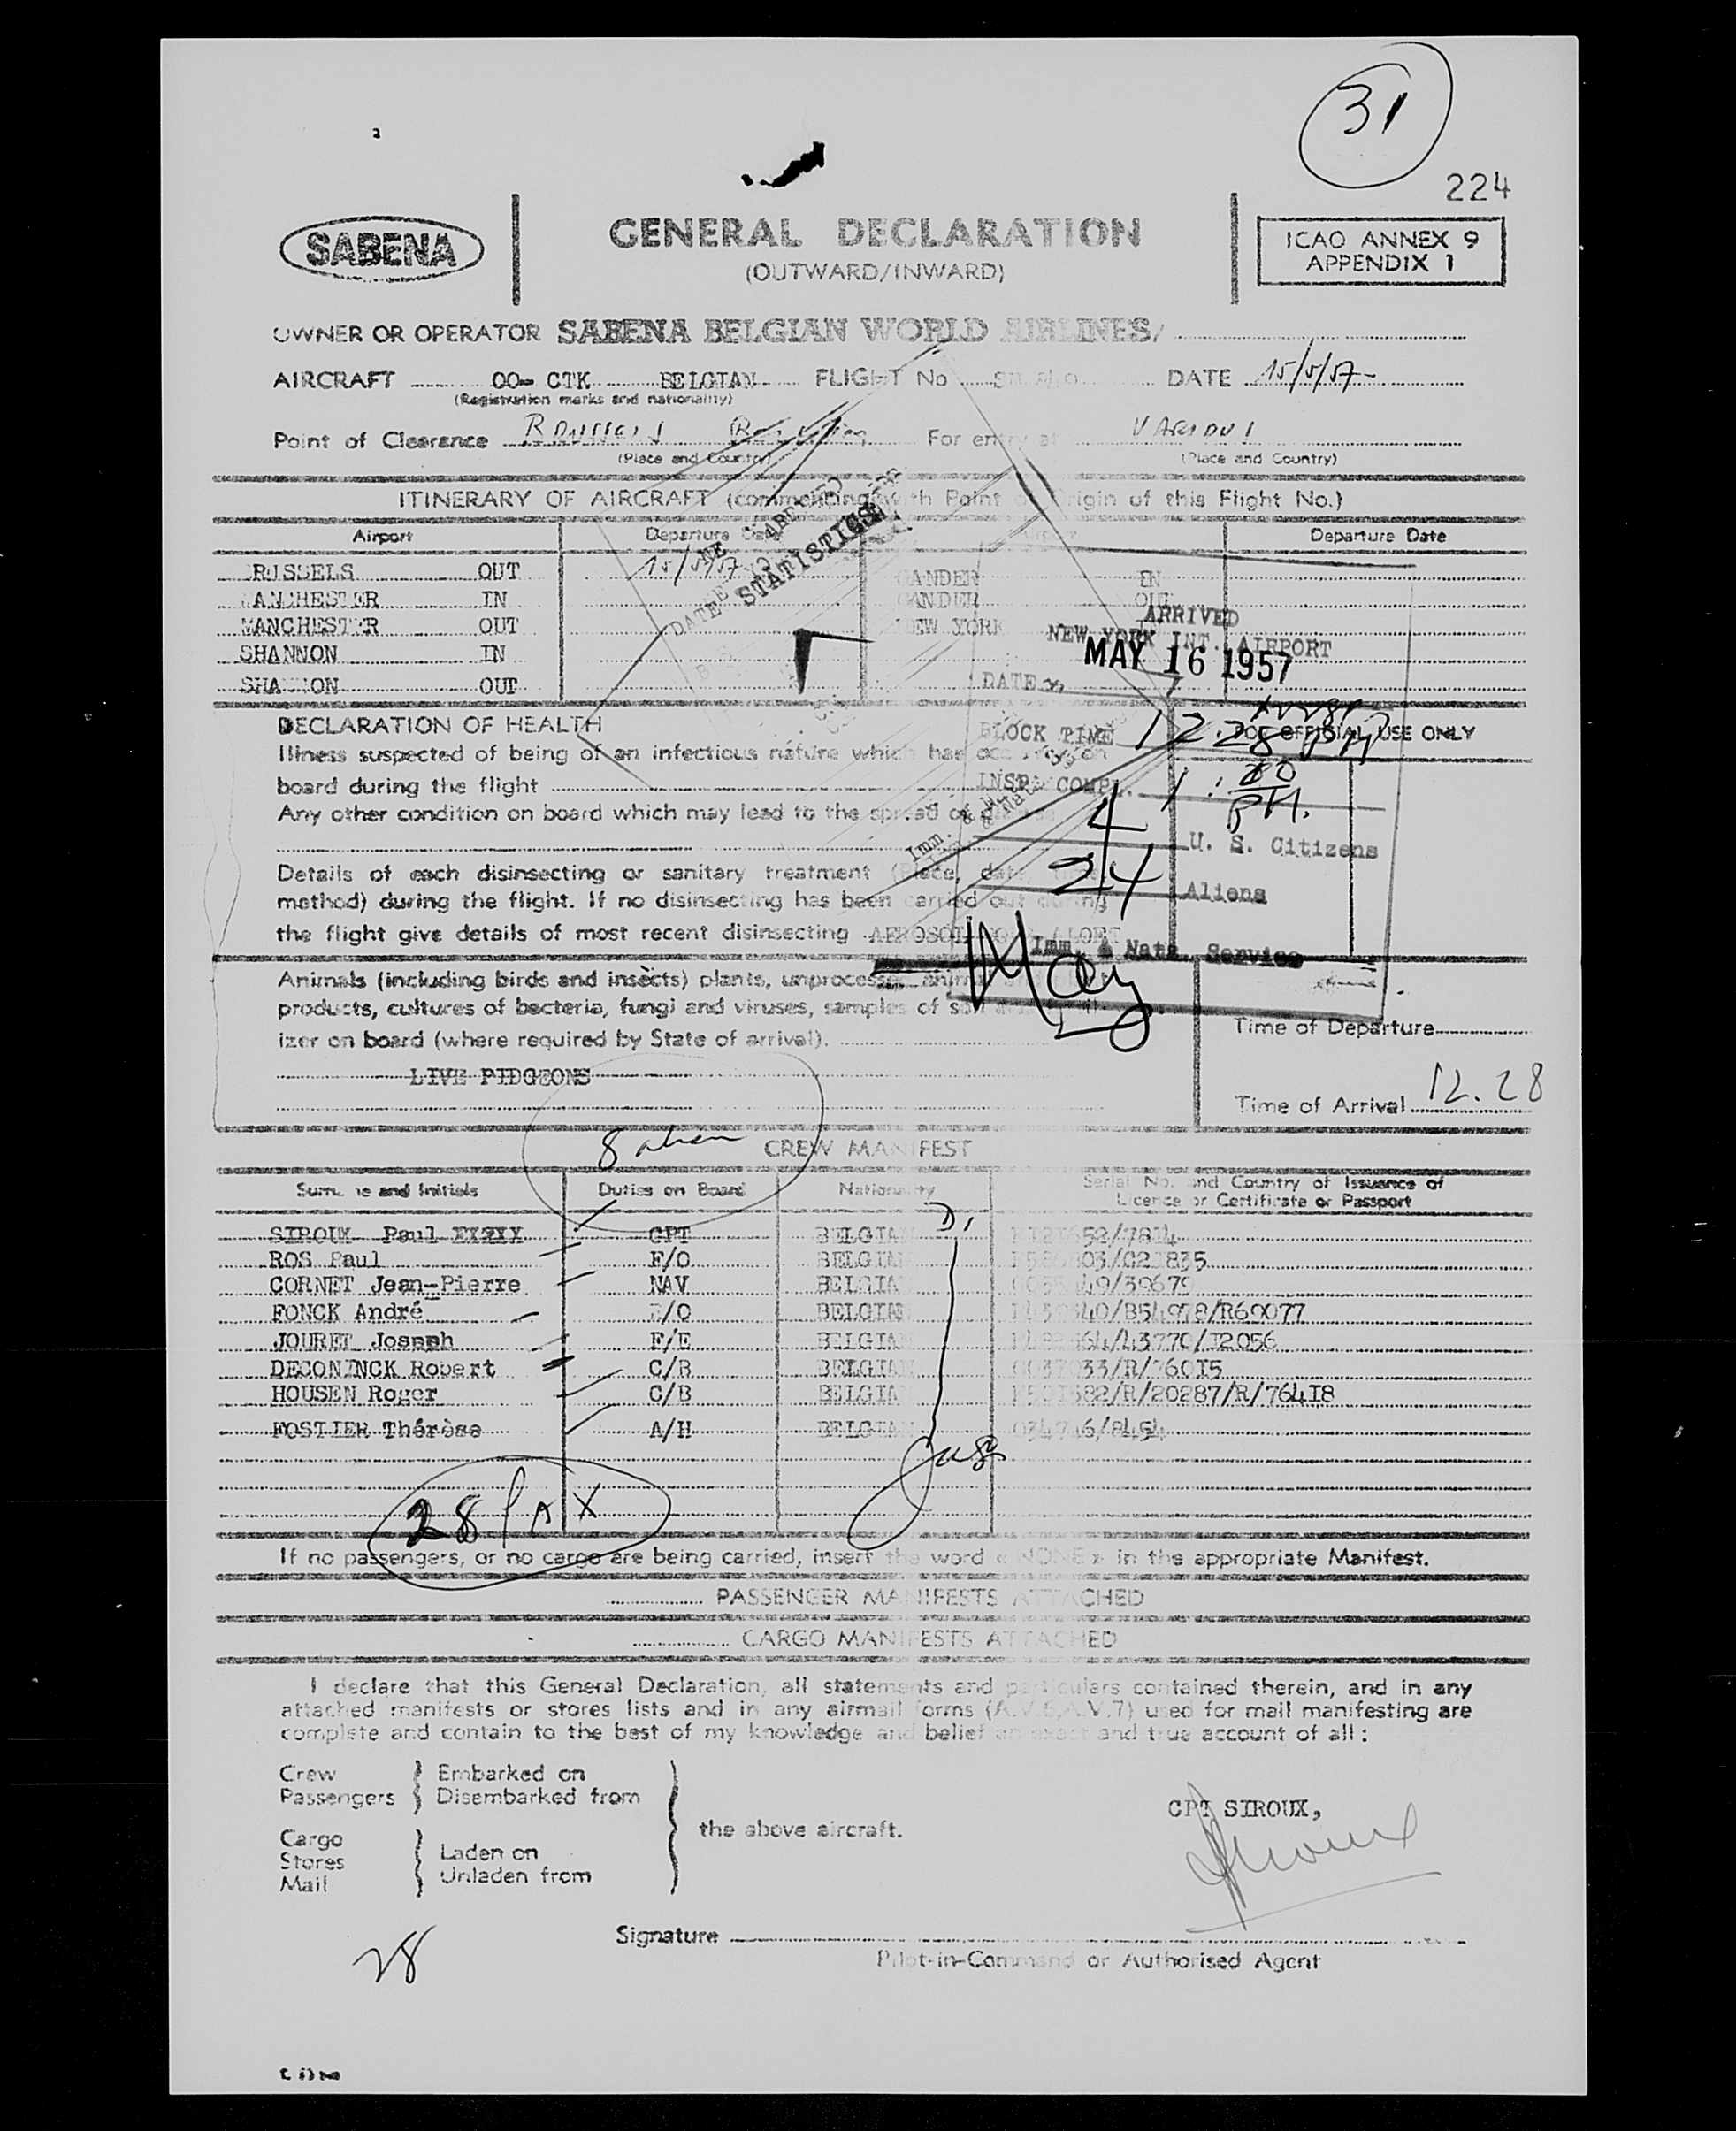 31
224
SABENA
GENERAL DECLARATION
(OUTWARD/INWARD)
ICAO ANNEX 9
APPENDIX 1
OWNER OR OPERATOR SABENA BELGIAN WORLD AIRLINES/
AIRCRAFT OO- CTK BELGIAN FLIGHT No DATE 15/5/57-
(Registration marks and nationality)
Point of Clearance For entry at VARIOUS
(Place and Country) (Place and Country)
ITINERARY OF AIRCRAFT (commencing with Point of Origin of this Flight No.)
Airport Departure Date Departure Date
RUSSELS OUT 15/5/57 GANDER IN
MANCHESTER IN GANDER OUT
MANCHESTER OUT NEW YORK
SHANNON IN
SHANNON OUT
STATISTICS
DATE
ARRIVED
NEW YORK INT. AIRPORT
MAY 16 1957
DATE
BLOCK TIME 12 28 PM
INSP. COMP. 1:20 PM.
4 U. S. Citizens
24 Aliens
Imm. & Natz. Service
DECLARATION OF HEALTH
FOR OFFICIAL USE ONLY
Illness suspected of being of an infectious nature which has occurred on
board during the flight
Any other condition on board which may lead to the spread of disease
Details of each disinsecting or sanitary treatment (Place, date, time,
method) during the flight. If no disinsecting has been carried out during
the flight give details of most recent disinsecting AEROSOL
Animals (including birds and insècts) plants, unprocessed animal
products, cultures of bacteria, fungi and viruses, samples of soil
izer on board (where required by State of arrival).
LIVE PIDGEONS
Time of Departure
Time of Arrival 12.28
8
CREW MANIFEST
Surname and Initials Duties on Board Nationality Serial No. and Country of Issuance of
Licence or Certificate or Passport
SIROUX Paul CPT BELGIAN
ROS Paul F/O BELGIAN
CORNET Jean-Pierre NAV BELGIAN
FONCK André /O BELGIAN /B54978/R69077
JOURET Joseph F/E BELGIAN /43770/I2056
DECONINCK Robert C/B BELGIAN /R/760I5
HOUSEN Roger C/B BELGIAN /R/20287/R/764I8
FOSTIER Thérèse A/H BELGIAN /8454
28 PAX
If no passengers, or no cargo are being carried, insert the word « NONE » in the appropriate Manifest.
PASSENGER MANIFESTS ATTACHED
CARGO MANIFESTS ATTACHED
I declare that this General Declaration, all statements and particulars contained therein, and in any
attached manifests or stores lists and in any airmail forms (A.V.6, A.V.7) used for mail manifesting are
complete and contain to the best of my knowledge and belief an exact and true account of all :
Crew Embarked on
Passengers Disembarked from
the above aircraft.
Cargo
Stores Laden on
Mail Unladen from
CPT SIROUX,
Signature
Pilot-in-Command or Authorised Agent
28